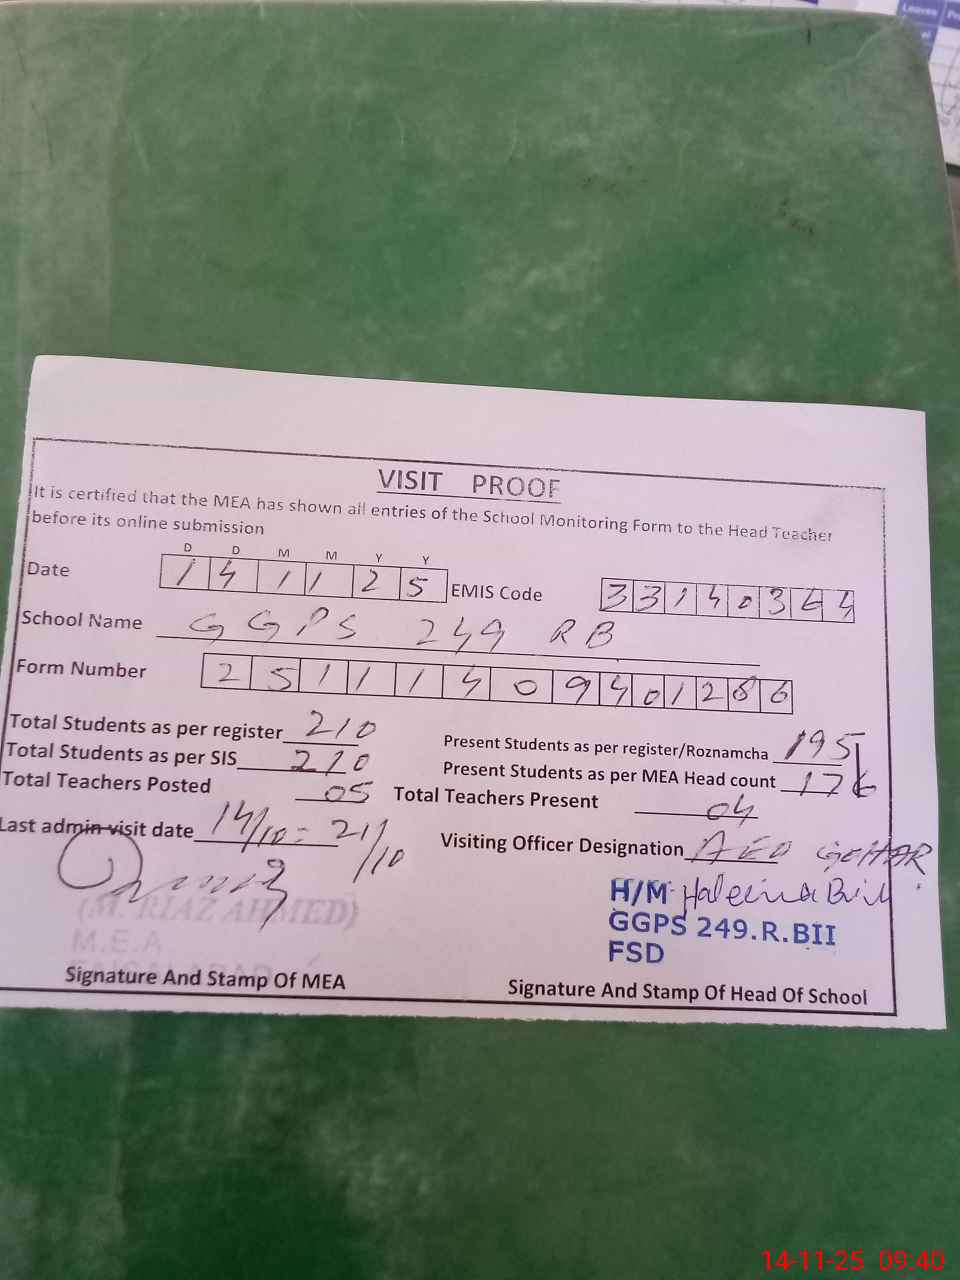 Leaves
VISIT PROOF
It is certified that the MEA has shown all entries of the School Monitoring Form to the Head Teacher
before its online submission
D D M M Y Y
Date 14 11 25 EMIS Code 33140364
School Name GGPS 249 RB
Form Number 25111409401286
Total Students as per register 210
Present Students as per register/Roznamcha 195
Total Students as per SIS 210
Present Students as per MEA Head count 176
Total Teachers Posted 05 Total Teachers Present 04
Last admin visit date 14/10 = 21/10
Visiting Officer Designation AEO
(M. RIAZ AHMED)
M.E.A
H/M Haleema Bibi
GGPS 249.R.BII
FSD
Signature And Stamp Of MEA
Signature And Stamp Of Head Of School
14-11-25 09:40